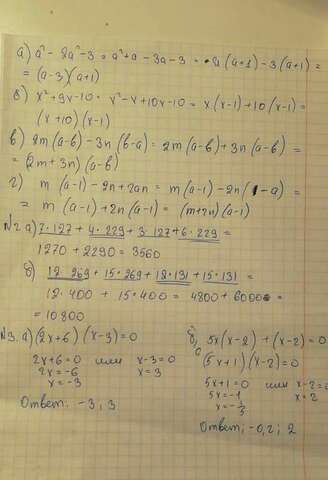 а) a² - 2a² - 3 = a² + a - 3a - 3 = a(a+1) - 3(a+1) =
= (a-3)(a+1)
в) x² + 9x - 10 = x² - x + 10x - 10 = x(x-1) + 10(x-1) =
(x+10)(x-1)
в) 2m(a-b) - 3n(b-a) = 2m(a-b) + 3n(a-b) =
= (2m+3n)(a-b)
г) m(a-1) - 2n + 2an = m(a-1) - 2n(1-a) =
= m(a-1) + 2n(a-1) = (m+2n)(a-1)
№2 а) 7·127 + 4·229 + 3·127 + 6·229 =
1270 + 2290 = 3560
б) 12·269 + 15·269 + 12·131 + 15·131 =
12·400 + 15·400 = 4800 + 6000 =
= 10800
№3. а) (2x+6)(x-3)=0
2x+6=0 или x-3=0
2x=-6 x=3
x=-3
Ответ: -3; 3
б) 5x(x-2) + (x-2) = 0
(5x+1)(x-2)=0
5x+1=0 или x-2=0
5x=-1 x=2
x=-1/5
Ответ: -0,2; 2